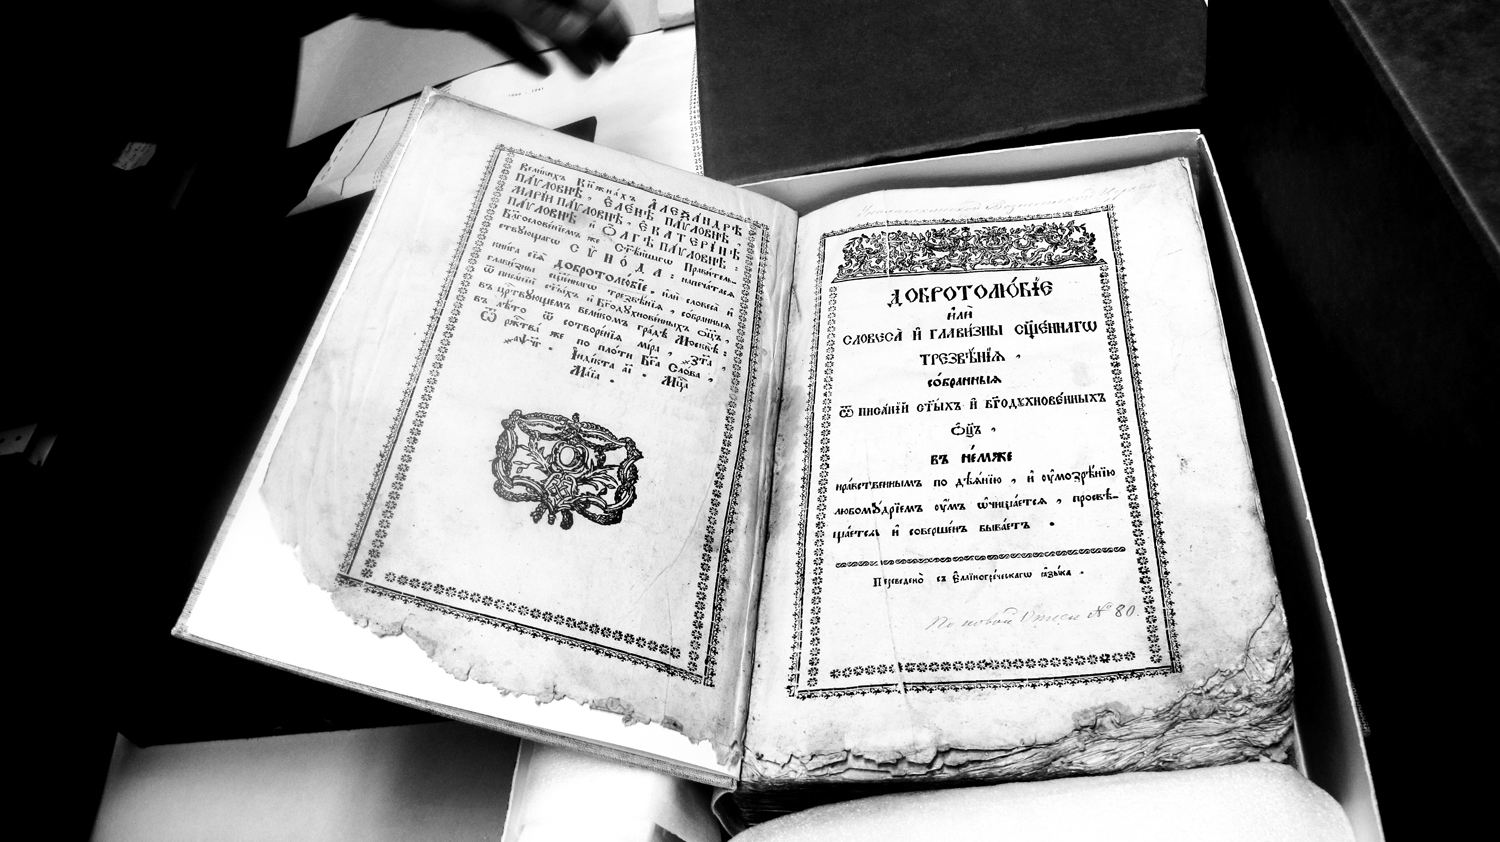 Вели́кихъ Кнѧжна́хъ А҆леѯа́ндрѣ
Па́ѵловнѣ, Е҆ле́нѣ Па́ѵловнѣ,
Марі́и Па́ѵловнѣ, Е҆катері́нѣ
Па́ѵловнѣ и҆ Ѻ҆́лгѣ Па́ѵловнѣ:
Благослове́нїемъ же Ст҃ѣ́йшагѡ Прави́тель-
ствꙋющагѡ Сѷно́да: напеча́тасѧ
кни́га сїѧ̀ Добротолю́бїе, и҆лѝ словеса̀ и҆
глави̑зны сщ҃е́ннагѡ трезвѣ́нїѧ, со́бранныѧ
ѿ писа́нїй ст҃ы́хъ и҆ бг҃одꙋхнове́нныхъ ѻ҆ц҃ъ,
въ цр҃ствꙋющемъ вели́комъ гра́дѣ Москвѣ̀:
въ лѣ́то ѿ сотворе́нїѧ мі́ра, ҂зт҃а,
Ѿ ржⷭ҇тва́ же по пло́ти Бг҃а Сло́ва,
҂аѱч҃г. І҆ндїкта а҃і. Мцⷭ҇а
Ма́їа.
Добротолю́бїе
и҆лѝ
словеса̀ и҆ глави̑зны сщ҃е́ннагѡ
трезвѣ́нїѧ,
со́бранныѧ
ѿ писа́нїй ст҃ы́хъ и҆ бг҃одꙋхнове́нныхъ
ѻ҆ц҃ъ,
въ не́мже
нра́вственнымъ по дѣѧ́нїю, и҆ ᲂу҆мозрѣ́нїю
любомꙋ́дрїемъ ᲂу҆́мъ ѡ҆чища́етсѧ, просвѣ-
ща́етсѧ и҆ соверше́нъ быва́етъ.
Переведено̀ съ Е҆ллиногре́ческагѡ ꙗ҆зы́ка.
По новой Описи № 80.